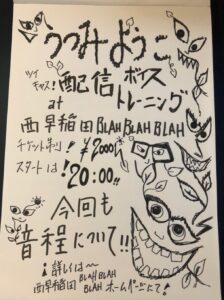 つつみようこ
ツイキャス!配信ボイス
トレーニング
at
西早稲田BLAH BLAH BLAH
チケット料!¥2000-
スタートは!20:00!!
今回も
音程について!!
詳しくは〜
西早稲田BLAH BLAH
BLAH ホームページにて!